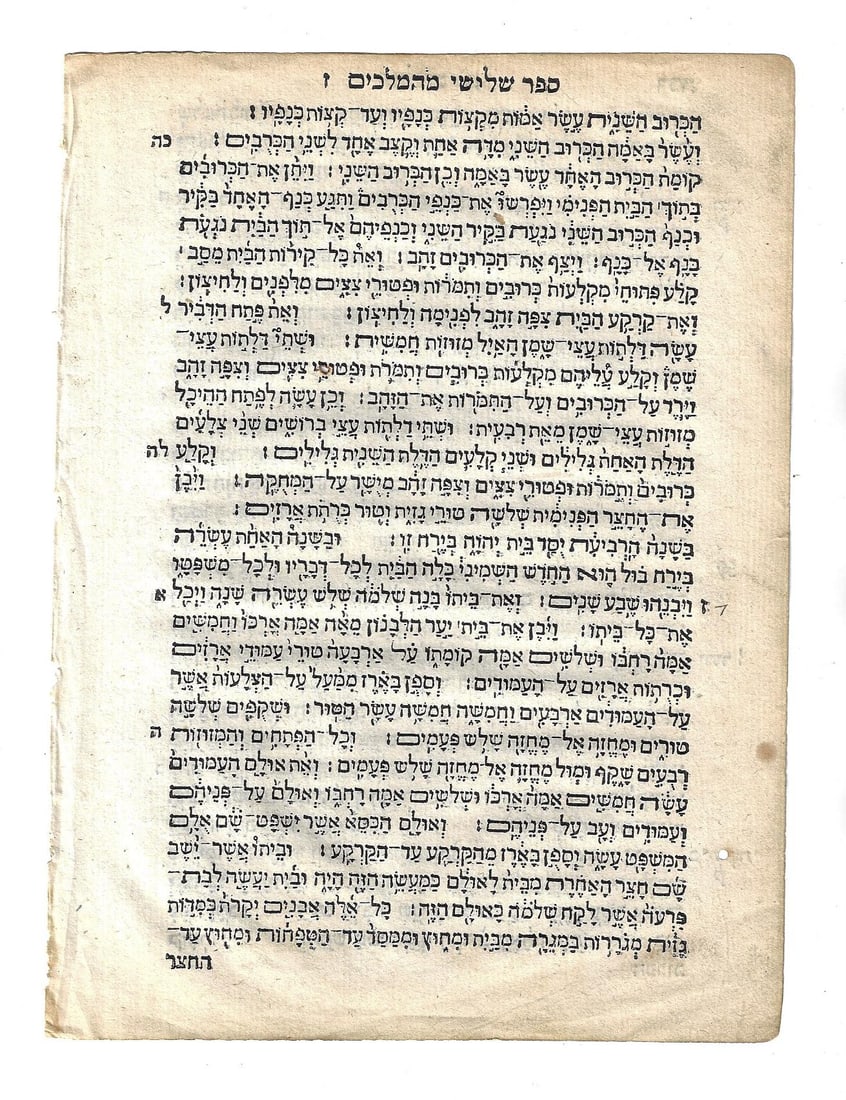 ספר שלישי מהמלכים ז
הַכְּרוּב הַשֵּׁנִית עֶשֶׂר אַמּוֹת מִקְצוֹת כְּנָפָיו וְעַד־קְצוֹת כְּנָפָיו׃
וְעֶשֶׂר בָּאַמָּה הַכְּרוּב הַשֵּׁנִי מִדָּה אַחַת וְקֶצֶב אֶחָד לִשְׁנֵי הַכְּרֻבִים׃ כה
קוֹמַת הַכְּרוּב הָאֶחָד עֶשֶׂר בָּאַמָּה וְכֵן הַכְּרוּב הַשֵּׁנִי׃ וַיִּתֵּן אֶת־הַכְּרוּבִים
בְּתוֹךְ הַבַּיִת הַפְּנִימִי וַיִּפְרְשׂוּ אֶת־כַּנְפֵי הַכְּרֻבִים וַתִּגַּע כְּנַף־הָאֶחָד בַּקִּיר
וּכְנַף הַכְּרוּב הַשֵּׁנִי נֹגַעַת בַּקִּיר הַשֵּׁנִי וְכַנְפֵיהֶם אֶל־תּוֹךְ הַבַּיִת נֹגְעֹת
כָּנָף אֶל־כָּנָף׃ וַיְצַף אֶת־הַכְּרוּבִים זָהָב׃ וְאֵת כָּל־קִירוֹת הַבַּיִת מֵסַב
קָלַע פִּתּוּחֵי מִקְלְעוֹת כְּרוּבִים וְתִמֹרוֹת וּפְטוּרֵי צִצִּים מִלִּפְנִים וְלַחִיצוֹן׃
וְאֶת־קַרְקַע הַבַּיִת צִפָּה זָהָב לִפְנִימָה וְלַחִיצוֹן׃ וְאֵת פֶּתַח הַדְּבִיר ל
עָשָׂה דַּלְתוֹת עֲצֵי־שָׁמֶן הָאַיִל מְזוּזוֹת חֲמִשִׁית׃ וּשְׁתֵּי דַּלְתוֹת עֲצֵי־
שֶׁמֶן וְקָלַע עֲלֵיהֶם מִקְלְעוֹת כְּרוּבִים וְתִמֹרֹת וּפְטוּרֵי צִצִּים וְצִפָּה זָהָב
וַיָּרֶד עַל־הַכְּרוּבִים וְעַל־הַתִּמֹרוֹת אֶת־הַזָּהָב׃ וְכֵן עָשָׂה לְפֶתַח הַהֵיכָל
מְזוּזוֹת עֲצֵי־שָׁמֶן מֵאֵת רְבִעִית׃ וּשְׁתֵּי דַלְתוֹת עֲצֵי בְרוֹשִׁים שְׁנֵי צְלָעִים
הַדֶּלֶת הָאַחַת גְּלִילִים וּשְׁנֵי קְלָעִים הַדֶּלֶת הַשֵּׁנִית גְּלִילִים׃ וְקָלַע לה
כְּרוּבִים וְתִמֹרוֹת וּפְטוּרֵי צִצִּים וְצִפָּה זָהָב מְיֻשָּׁר עַל־הַמְּחֻקֶּה׃ וַיִּבֶן
אֶת־הֶחָצֵר הַפְּנִימִית שְׁלֹשָׁה טוּרֵי גָזִית וְטוּר כְּרֻתֹת אֲרָזִים׃
בַּשָּׁנָה הָרְבִיעִית יֻסַּד בֵּית יְהוָֹה בְּיֶרַח זִו׃ וּבַשָּׁנָה הָאַחַת עֶשְׂרֵה
בְּיֶרַח בּוּל הוּא הַחֹדֶשׁ הַשְּׁמִינִי כָּלָה הַבַּיִת לְכָל־דְּבָרָיו וּלְכָל־מִשְׁפָּטָו
ז וַיִּבְנֵהוּ שֶׁבַע שָׁנִים׃ וְאֶת־בֵּיתוֹ בָּנָה שְׁלֹמֹה שְׁלֹשׁ עֶשְׂרֵה שָׁנָה וַיְכַל א
אֶת־כָּל־בֵּיתוֹ׃ וַיִּבֶן אֶת־בֵּית יַעַר הַלְּבָנוֹן מֵאָה אַמָּה אָרְכּוֹ וַחֲמִשִּׁים
אַמָּה רָחְבּוֹ וּשְׁלֹשִׁים אַמָּה קוֹמָתוֹ עַל אַרְבָּעָה טוּרֵי עַמּוּדֵי אֲרָזִים
וּכְרֻתוֹת אֲרָזִים עַל־הָעַמּוּדִים׃ וְסָפֻן בָּאֶרֶז מִמַּעַל עַל־הַצְּלָעוֹת אֲשֶׁר
עַל־הָעַמּוּדִים אַרְבָּעִים וַחֲמִשָּׁה חֲמִשָּׁה עָשָׂר הַטּוּר׃ וּשְׁקֻפִים שְׁלֹשָׁה
טוּרִים וּמֶחֱזָה אֶל־מֶחֱזָה שָׁלֹשׁ פְּעָמִים׃ וְכָל־הַפְּתָחִים וְהַמְּזוּזוֹת ה
רְבֻעִים שָׁקֶף וּמוּל מֶחֱזָה אֶל־מֶחֱזָה שָׁלֹשׁ פְּעָמִים׃ וְאֵת אוּלָם הָעַמּוּדִים
עָשָׂה חֲמִשִּׁים אַמָּה אָרְכּוֹ וּשְׁלֹשִׁים אַמָּה רָחְבּוֹ וְאוּלָם עַל־פְּנֵיהֶם
וְעַמּוּדִים וְעָב עַל־פְּנֵיהֶם׃ וְאוּלָם הַכִּסֵּא אֲשֶׁר יִשְׁפָּט־שָׁם אֻלָם
הַמִּשְׁפָּט עָשָׂה וְסָפֻן בָּאֶרֶז מֵהַקַּרְקַע עַד־הַקַּרְקַע׃ וּבֵיתוֹ אֲשֶׁר־יֵשֶׁב
שָׁם חָצֵר הָאַחֶרֶת מִבֵּית לָאוּלָם כַּמַּעֲשֶׂה הַזֶּה הָיָה וּבַיִת יַעֲשֶׂה לְבַת־
פַּרְעֹה אֲשֶׁר לָקַח שְׁלֹמֹה כָּאוּלָם הַזֶּה׃ כָּל־אֵלֶּה אֲבָנִים יְקָרֹת כְּמִדּוֹת
גָּזִית מְגֹרָרוֹת בַּמְּגֵרָה מִבַּיִת וּמִחוּץ וּמִמַּסָּד עַד־הַטְּפָחוֹת וּמִחוּץ עַד־
החצר